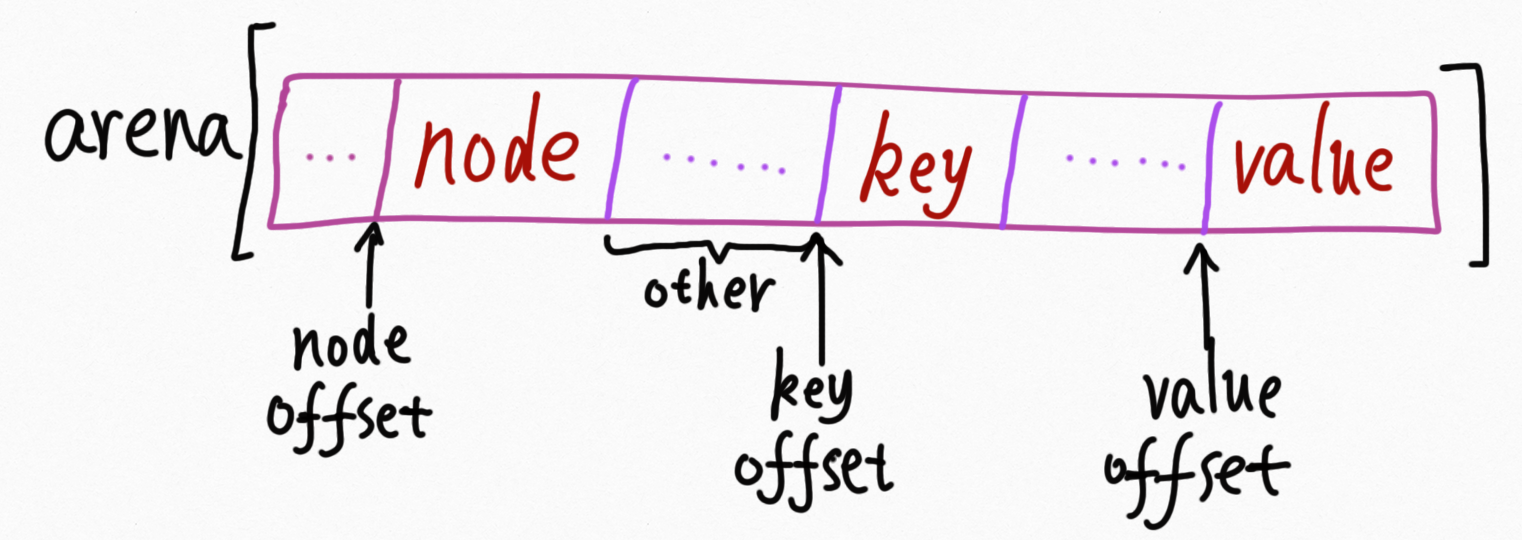 arena [ ... node ...... key ...... value ]
other
node
offset
key
offset
value
offset